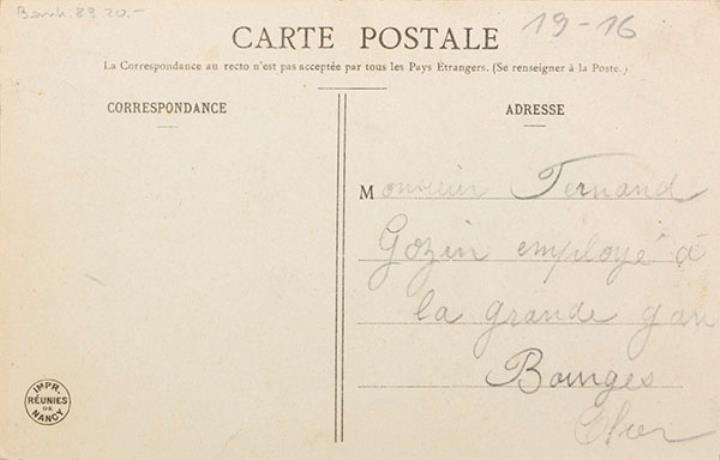 Barik. 89 20.-
19-16
CARTE POSTALE
La Correspondance au recto n'est pas acceptée par tous les Pays Étrangers. (Se renseigner à la Poste.)
CORRESPONDANCE
ADRESSE
Monsieur Fernand
Gozin employé à
la grande gare
Bourges
Cher
IMPR.
RÉUNIES
DE
NANCY